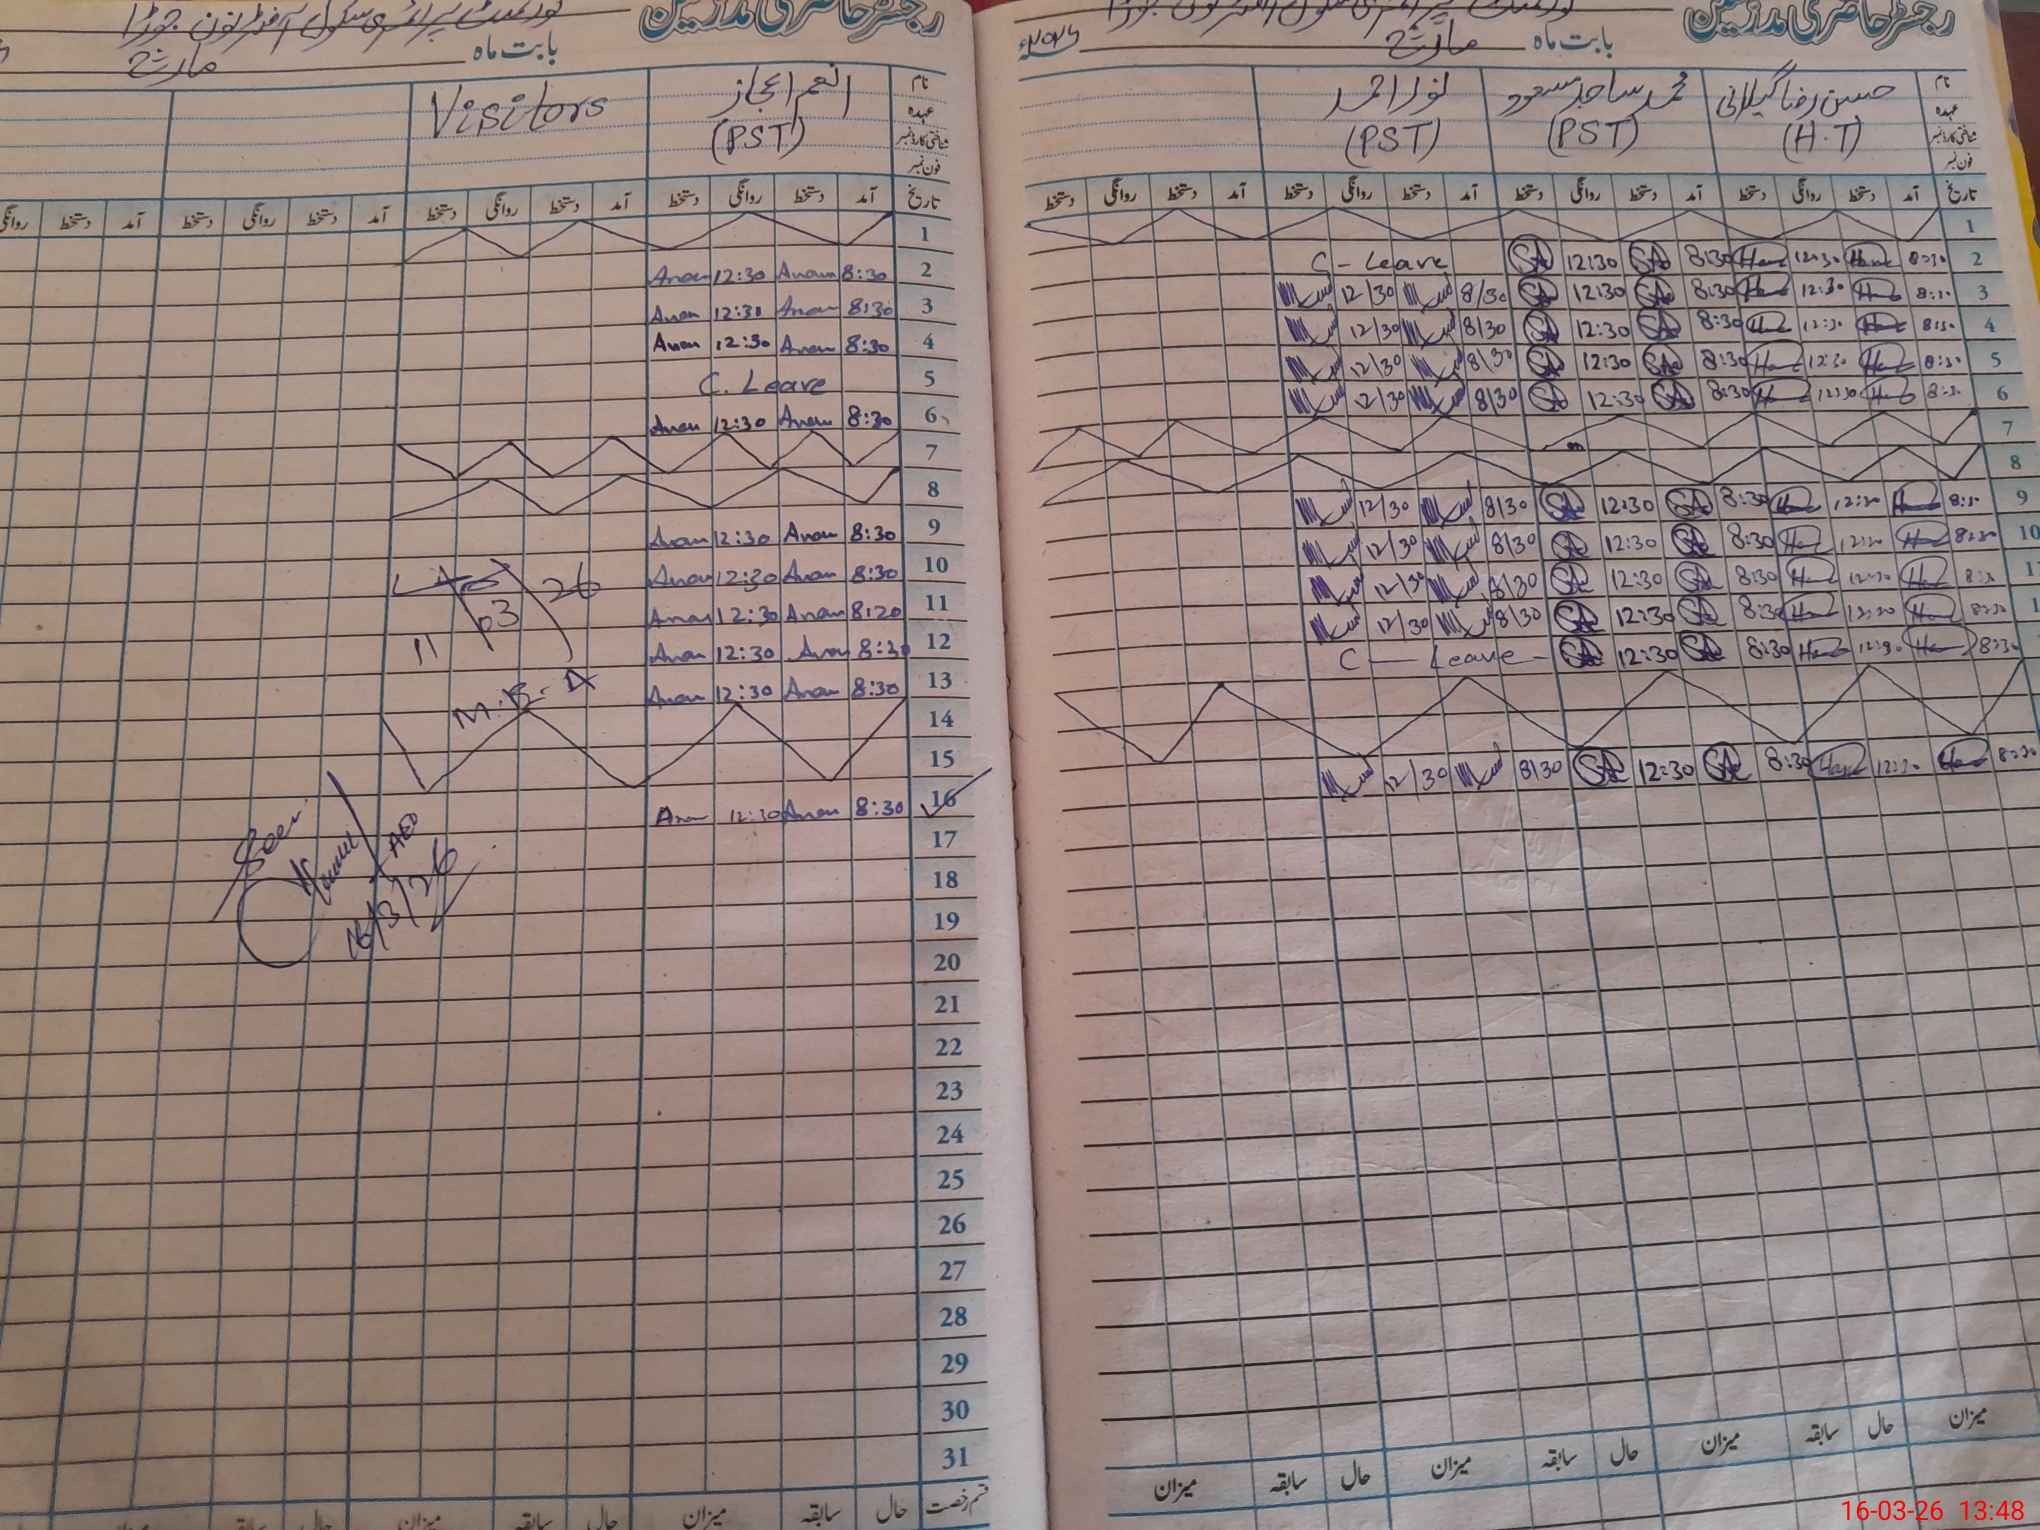 رجسٹر حاضری مدرسین
بابت ماہ مارچ ۲۰۲۶ء
نام
عہدہ
شناختی کارڈ نمبر
فون نمبر
حسن رضا گیلانی
(H.T)
محمد ساجد مسعود
(PST)
نور احمد
(PST)
تاریخ آمد دستخط روانگی دستخط آمد دستخط روانگی دستخط آمد دستخط روانگی دستخط آمد دستخط روانگی دستخط
1
2 8:30 12:30 8:30 12:30 C-Leave
3 8:30 12:30 8:30 12:30 8/30 12/30
4 8:30 12:30 8:30 12:30 8/30 12/30
5 8:30 12:30 8:30 12:30 8/30 12/30
6 8:30 12:30 8:30 12:30 8/30 12/30
7
8
9 8:30 12:30 8:30 12:30 8/30 12/30
10 8:30 12:30 8:30 12:30 8/30 12/30
8:30 12:30 8:30 12:30 8/30 12/30
8:30 12:30 8:30 12:30 8/30 12/30
8:30 12:30 8:30 12:30 C-Leave
8:30 12:30 8:30 12:30 8/30 12/30
میزان حال سابقہ میزان حال سابقہ میزان حال سابقہ میزان
رجسٹر حاضری مدرسین
گورنمنٹ پرائمری سکول
بابت ماہ مارچ
نام
عہدہ
شناختی کارڈ نمبر
فون نمبر
انعم اعجاز
(PST)
Visitors
تاریخ آمد دستخط روانگی دستخط آمد دستخط روانگی دستخط آمد دستخط روانگی دستخط آمد دستخط روانگی
1
2 8:30 Anam 12:30 Anam
3 8:30 Anam 12:30 Anam
4 8:30 Anam 12:30 Anam
5 C. Leave
6 8:30 Anam 12:30 Anam
7
8
9 8:30 Anam 12:30 Anam
10 8:30 Anam 12:30 Anam
11 8:20 Anam 12:30 Anam
12 8:30 Anam 12:30 Anam
13 8:30 Anam 12:30 Anam
11 03 26
M.E.A
14
15
16 8:30 Anam 12:30 Anam
Seen
AEO
16/3/26
17
18
19
20
21
22
23
24
25
26
27
28
29
30
31
قسم رخصت حال سابقہ میزان حال سابقہ میزان حال سابقہ
16-03-26 13:48